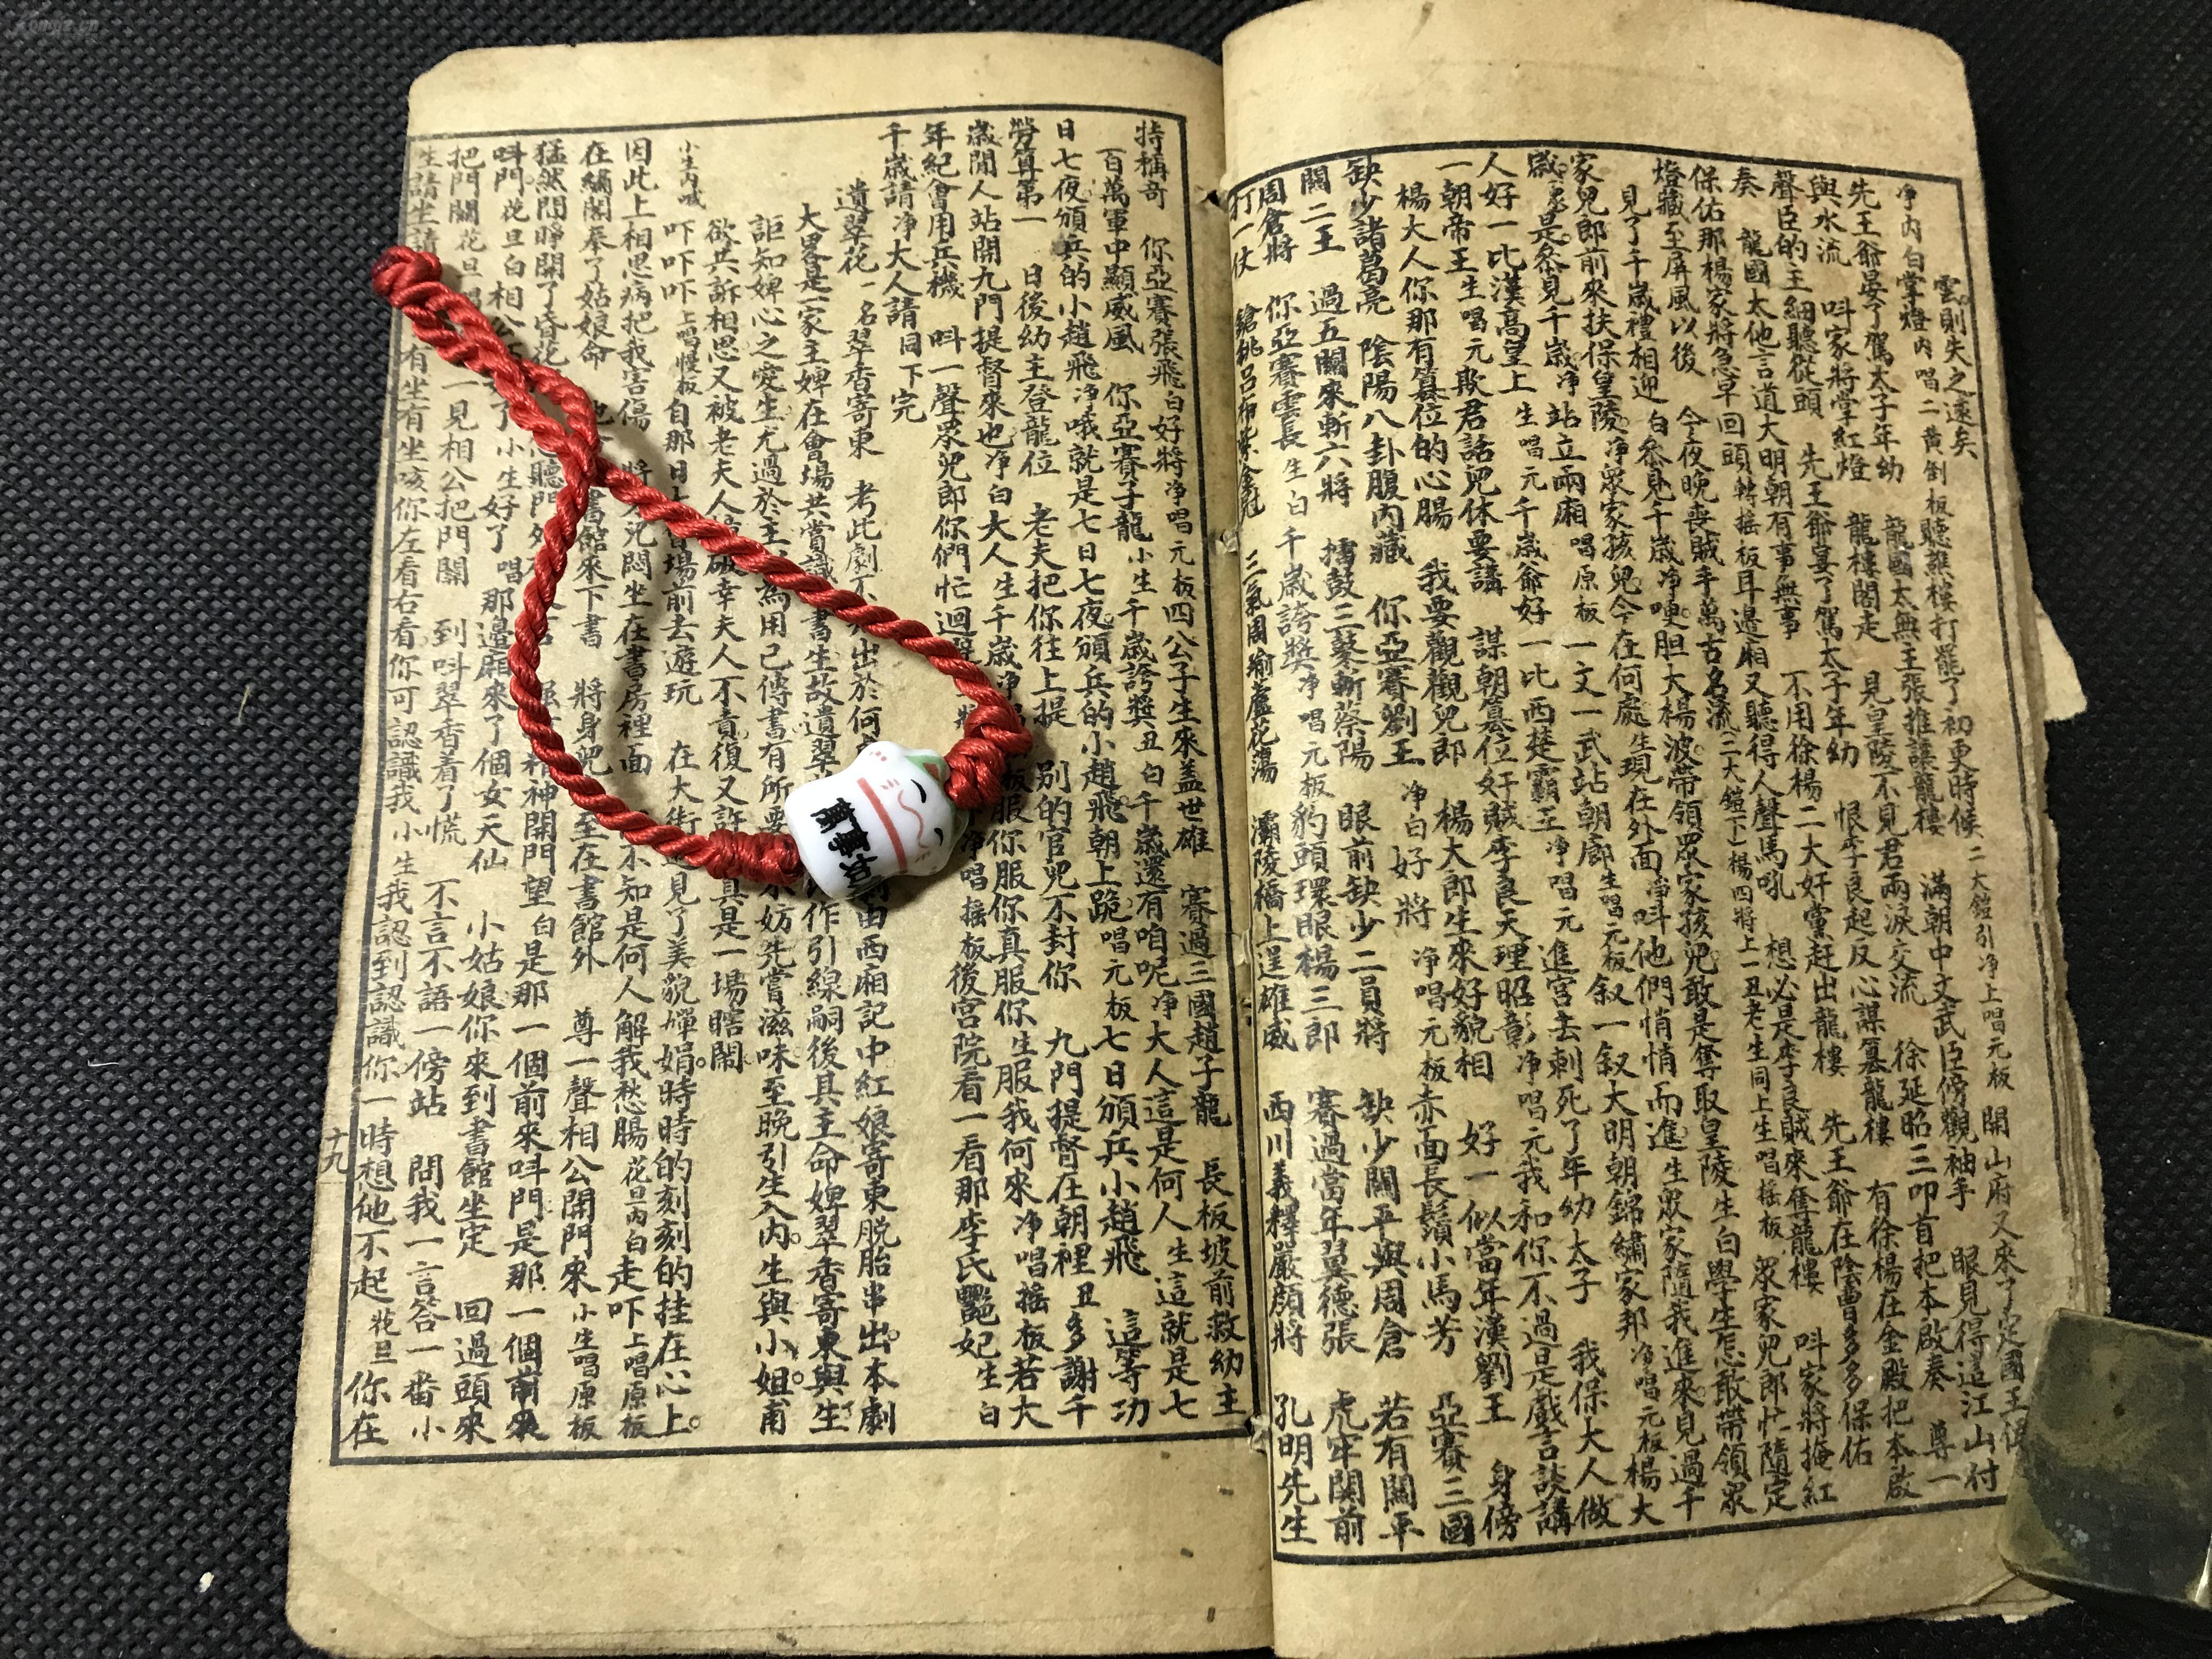 雲則失之遠矣
净內白掌燈內唱二黃倒板聽譙樓打罷了初更時候二大鎧引净上唱元板開山府又來了定國王侯
先王爺晏了駕太子年幼 龍國太無主張推讓龍樓 滿朝中文武臣傍觀袖手 眼見得這江山付
與水流 呌家將掌紅燈 龍樓閣走 見皇陵不見君兩淚交流 徐延昭三叩首把本啟奏 尊一
聲臣的王細聽從頭 先王爺宴了駕太子年幼 恨李良起反心謀篡龍樓 有徐楊在金殿把本啟
奏 龍國太他言道大明朝有事無事 不用徐楊二大奸黨赶出龍樓 先王爺在陰曹多多保佑
保佑那楊家將急早回頭轉搖板耳邊廂又聽得人聲馬吼 想必是李良賊來奪龍樓 呌家將掩紅
燈藏至屏風以後 今夜晚喪賊手萬古名流(二大鎧下)楊四將上一丑老生同上生唱搖板 眾家兒郎忙隨定
見了千歲禮相迎 白叅見千歲净唗胆大楊波帶領眾家孩兒敢是奪取皇陵生白學生怎敢帶領眾
家兒郎前來扶保皇陵净眾家孩兒今在何處生現在外面净呌他們悄悄而進生眾家隨我進來見過千
歲眾是叅見千歲净站立兩廂唱原板一文一武站朝廊生唱元板叙一叙大明朝錦繡家邦净唱元板楊大
人好一比漢高皇上生唱元千歲爺好一比西楚霸王净唱元進宮去刺死了年幼太子 我保大人做
一朝帝王生唱元欺君話兒休要講 謀朝篡位奸賊李良天理昭彰净唱元我和你不過是戲言談講
楊大人你那有篡位的心腸 我要觀觀兒郎 楊大郎生來好貌相 好一似當年漢劉王 身傍
缺少諸葛亮 陰陽八卦腹內藏 你亞賽劉王 净白好將 净唱元板赤面長鬚小馬芳 亞賽三國
關二王 過五關來斬六將 擂鼓三䓁斬蔡陽 眼前缺少二員將 缺少關平與周倉 若有關平
周倉將 你亞賽雲長生白千歲誇獎净唱元板豹頭環眼楊三郎 賽過當年翼德張 虎牢關前
打一仗 鎗挑呂布紫金冠 三氣周瑜蘆花蕩 灞陵橋上逞雄威 西川義釋嚴顏將 孔明先生
特稱奇 你亞賽張飛白好將净唱元板四公子生來盖世雄 賽過三國趙子龍 長板坡前救幼主
百萬軍中顯威風 你亞賽子龍小生千歲誇獎丑白千歲還有咱呢净大人這是何人生這就是七
日七夜頒兵的小趙飛净哦就是七日七夜頒兵的小趙飛朝上跪唱元板七日頒兵小趙飛 這等功
勞算第一 日後幼主登龍位 老夫把你往上提 别的官兒不封你 九門提督在朝裡丑多謝千
歲閒人站開九門提督來也净白大人生千歲净 板服你服你真服你生服我何來净唱搖板若大
年紀會用兵機 呌一聲眾兒郎你們忙迴避 净唱搖板後宮院看一看那李氏艷妃生白
千歲請净大人請同下完
遺翠花一名翠香寄柬 考此劇不 出於何 由西廂記中紅娘寄柬脱胎串出本劇
大畧是一家主婢在會場共賞識 書生故遺翠 作引線嗣後其主命婢翠香寄柬與生
詎知婢心之愛生尤過於主 為用己傳書有所要 妨先嘗滋味至晚引生入內生與小姐甫
欲共訴相思又被老夫人 破幸夫人不責復又許 具是一場瞎鬧
小生內嘁 吓吓吓上唱慢板自那日上 場前去遊玩 在大街 見了美貌嬋娟時時的刻刻的挂在心上
因此上相思病把我害傷 將 兒悶坐在書房裡面 不知是何人解我愁腸花旦內白走吓上唱原板
在繡閣奉了姑娘命 書館來下書 將身兒 至在書館外 尊一聲相公開門來小生唱原板
猛然間睜開了昏花 聽門外 精神開門望白是那一個前來呌門是那一個前來
呌門花旦白相公 了小生好了唱 那邊廂來了個女天仙 小姑娘你來到書館坐定 回過頭來
把門關花旦唱 一見相公把門關 到呌翠香着了慌 不言不語一傍站 問我一言答一番小
生請坐請 有坐有坐咳你左看右看你可認識我小生我認到認識你一時想他不起花旦你在
十九
萬事如